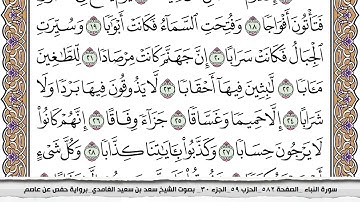 فَتَأْتُونَ أَفْوَاجًا ١٨ وَفُتِحَتِ ٱلسَّمَآءُ فَكَانَتْ أَبْوَٰبًا ١٩ وَسُيِّرَتِ
ٱلْجِبَالُ فَكَانَتْ سَرَابًا ٢٠ إِنَّ جَهَنَّمَ كَانَتْ مِرْصَادًا ٢١ لِّلطَّٰغِينَ
مَـَٔابًا ٢٢ لَّٰبِثِينَ فِيهَآ أَحْقَابًا ٢٣ لَّا يَذُوقُونَ فِيهَا بَرْدًا وَلَا
شَرَابًا ٢٤ إِلَّا حَمِيمًا وَغَسَّاقًا ٢٥ جَزَآءً وِفَاقًا ٢٦ إِنَّهُمْ كَانُوا۟
لَا يَرْجُونَ حِسَابًا ٢٧ وَكَذَّبُوا۟ بِـَٔايَٰتِنَا كِذَّابًا ٢٨ وَكُلَّ شَىْءٍ
سورة النباء_الصفحة ٥٨٢_الحزب ٥٩_الجزء ٣٠_ بصوت الشيخ سعد بن سعيد الغامدي_برواية حفص عن عاصم